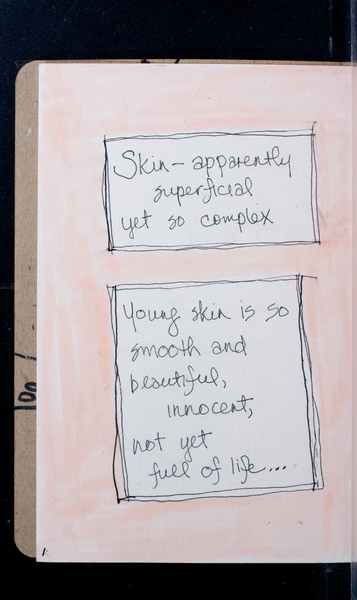 Skin - apparently
superficial
yet so complex
Young skin is so
smooth and
beautiful,
innocent,
not yet
full of life...
1.